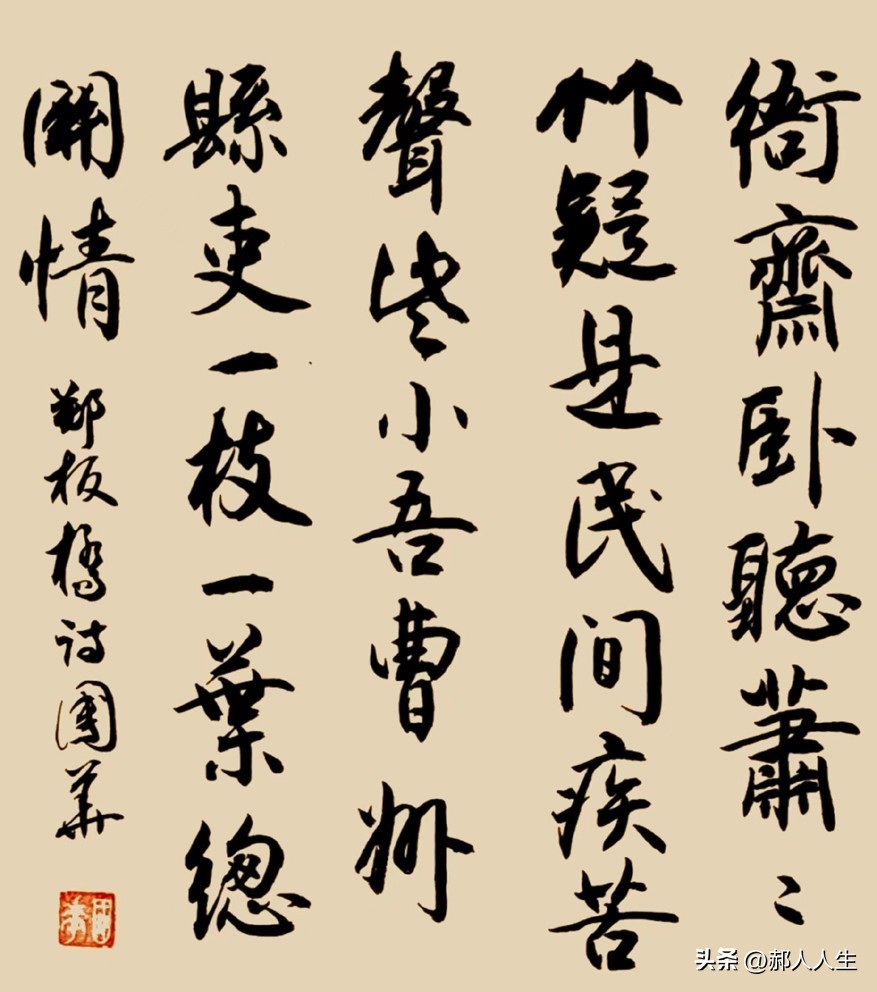 衙齋卧聽蕭〻
竹疑是民间疾苦
聲些小吾曹州
縣吏一枝一葉總
關情
鄭板橋诗國華
头条 @郝人人生